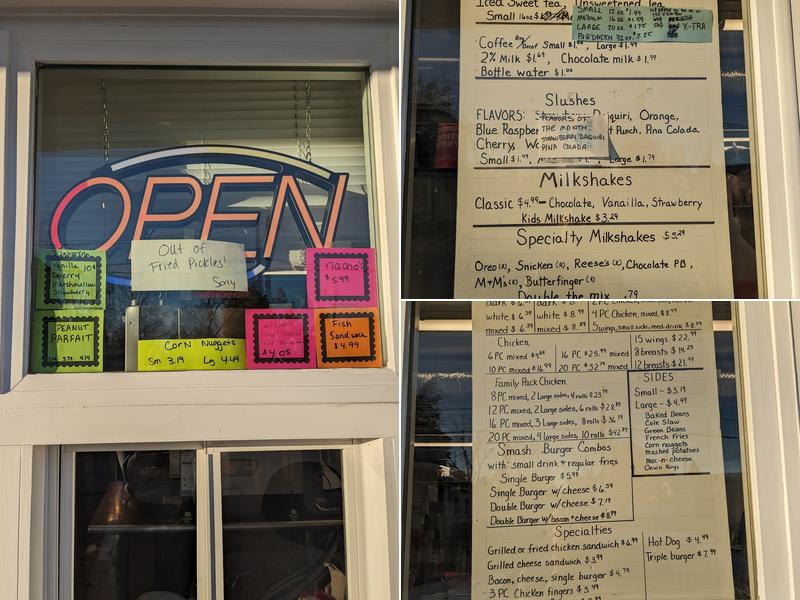 OPEN
Out of
Fried Pickles!
Sorry
Vanilla 10¢
Cherry
Marshmallow
Strawberry
nachos
$5.99
PEANUT
PARFAIT
Corn Nuggets
Sm 3.19 Lg 4.49
$4.05
Fish
Sandwich
$4.99
Iced Sweet tea, Unsweetened tea
Small 16oz
SMALL 12 oz $1.49
MEDIUM 16 oz $1.59
LARGE 20 oz $1.75 X-TRA
32 oz $2.25
Coffee Reg/Decaf Small $1.00, Large $1.49
2% Milk $1.69, Chocolate milk $1.99
Bottle water $1.00
Slushes
FLAVORS: Daiquiri, Orange,
Blue Raspber Punch, Pina Colada
Cherry,
Small $1.49, Large $1.79
FLAVORS OF
THE MONTH
STRAWBERRY DAIQUIRI
PINA COLADA
Milkshakes
Classic $4.99 - Chocolate, Vanailla, Strawberry
Kids Milkshake $3.29
Specialty Milkshakes $5.29
Oreo(R), Snickers(R), Reese's(R), Chocolate PB,
M+M's(R), Butterfinger(R)
Double the mix .79
white $6.39 white $8.99 4 PC Chicken, mixed, $8.99
mixed $6.39 mixed $8.99 5 wings, small side, med. drink $8.99
Chicken
6 PC mixed 16 PC $25.99 mixed
10 PC mixed $16.99 20 PC $32.79 mixed
15 wings $22.99
8 breasts $14.29
12 breasts $21.99
Family Pack Chicken
8 PC mixed, 2 Large sides, 4 rolls $23.79
12 PC mixed, 2 Large sides, 6 rolls $28.89
16 PC mixed, 3 Large sides, 8 rolls $36.19
20 PC mixed, 4 large sides, 10 rolls
SIDES
Small - $3.19
Large - $4.49
Baked Beans
Cole Slaw
Green Beans
French Fries
Corn nuggets
mashed potatoes
mac-n-cheese
Onion Rings
Smash Burger Combos
with: small drink & regular fries
Single Burger $5.99
Single Burger w/cheese $6.59
Double Burger w/cheese $7.19
Double Burger w/bacon & cheese $8.99
Specialties
Grilled or fried chicken sandwich $6.99
Grilled cheese sandwich $3.99
Bacon, cheese, single burger $4.79
3 PC Chicken fingers $5.49
Hot Dog $4.49
Triple burger $7.99